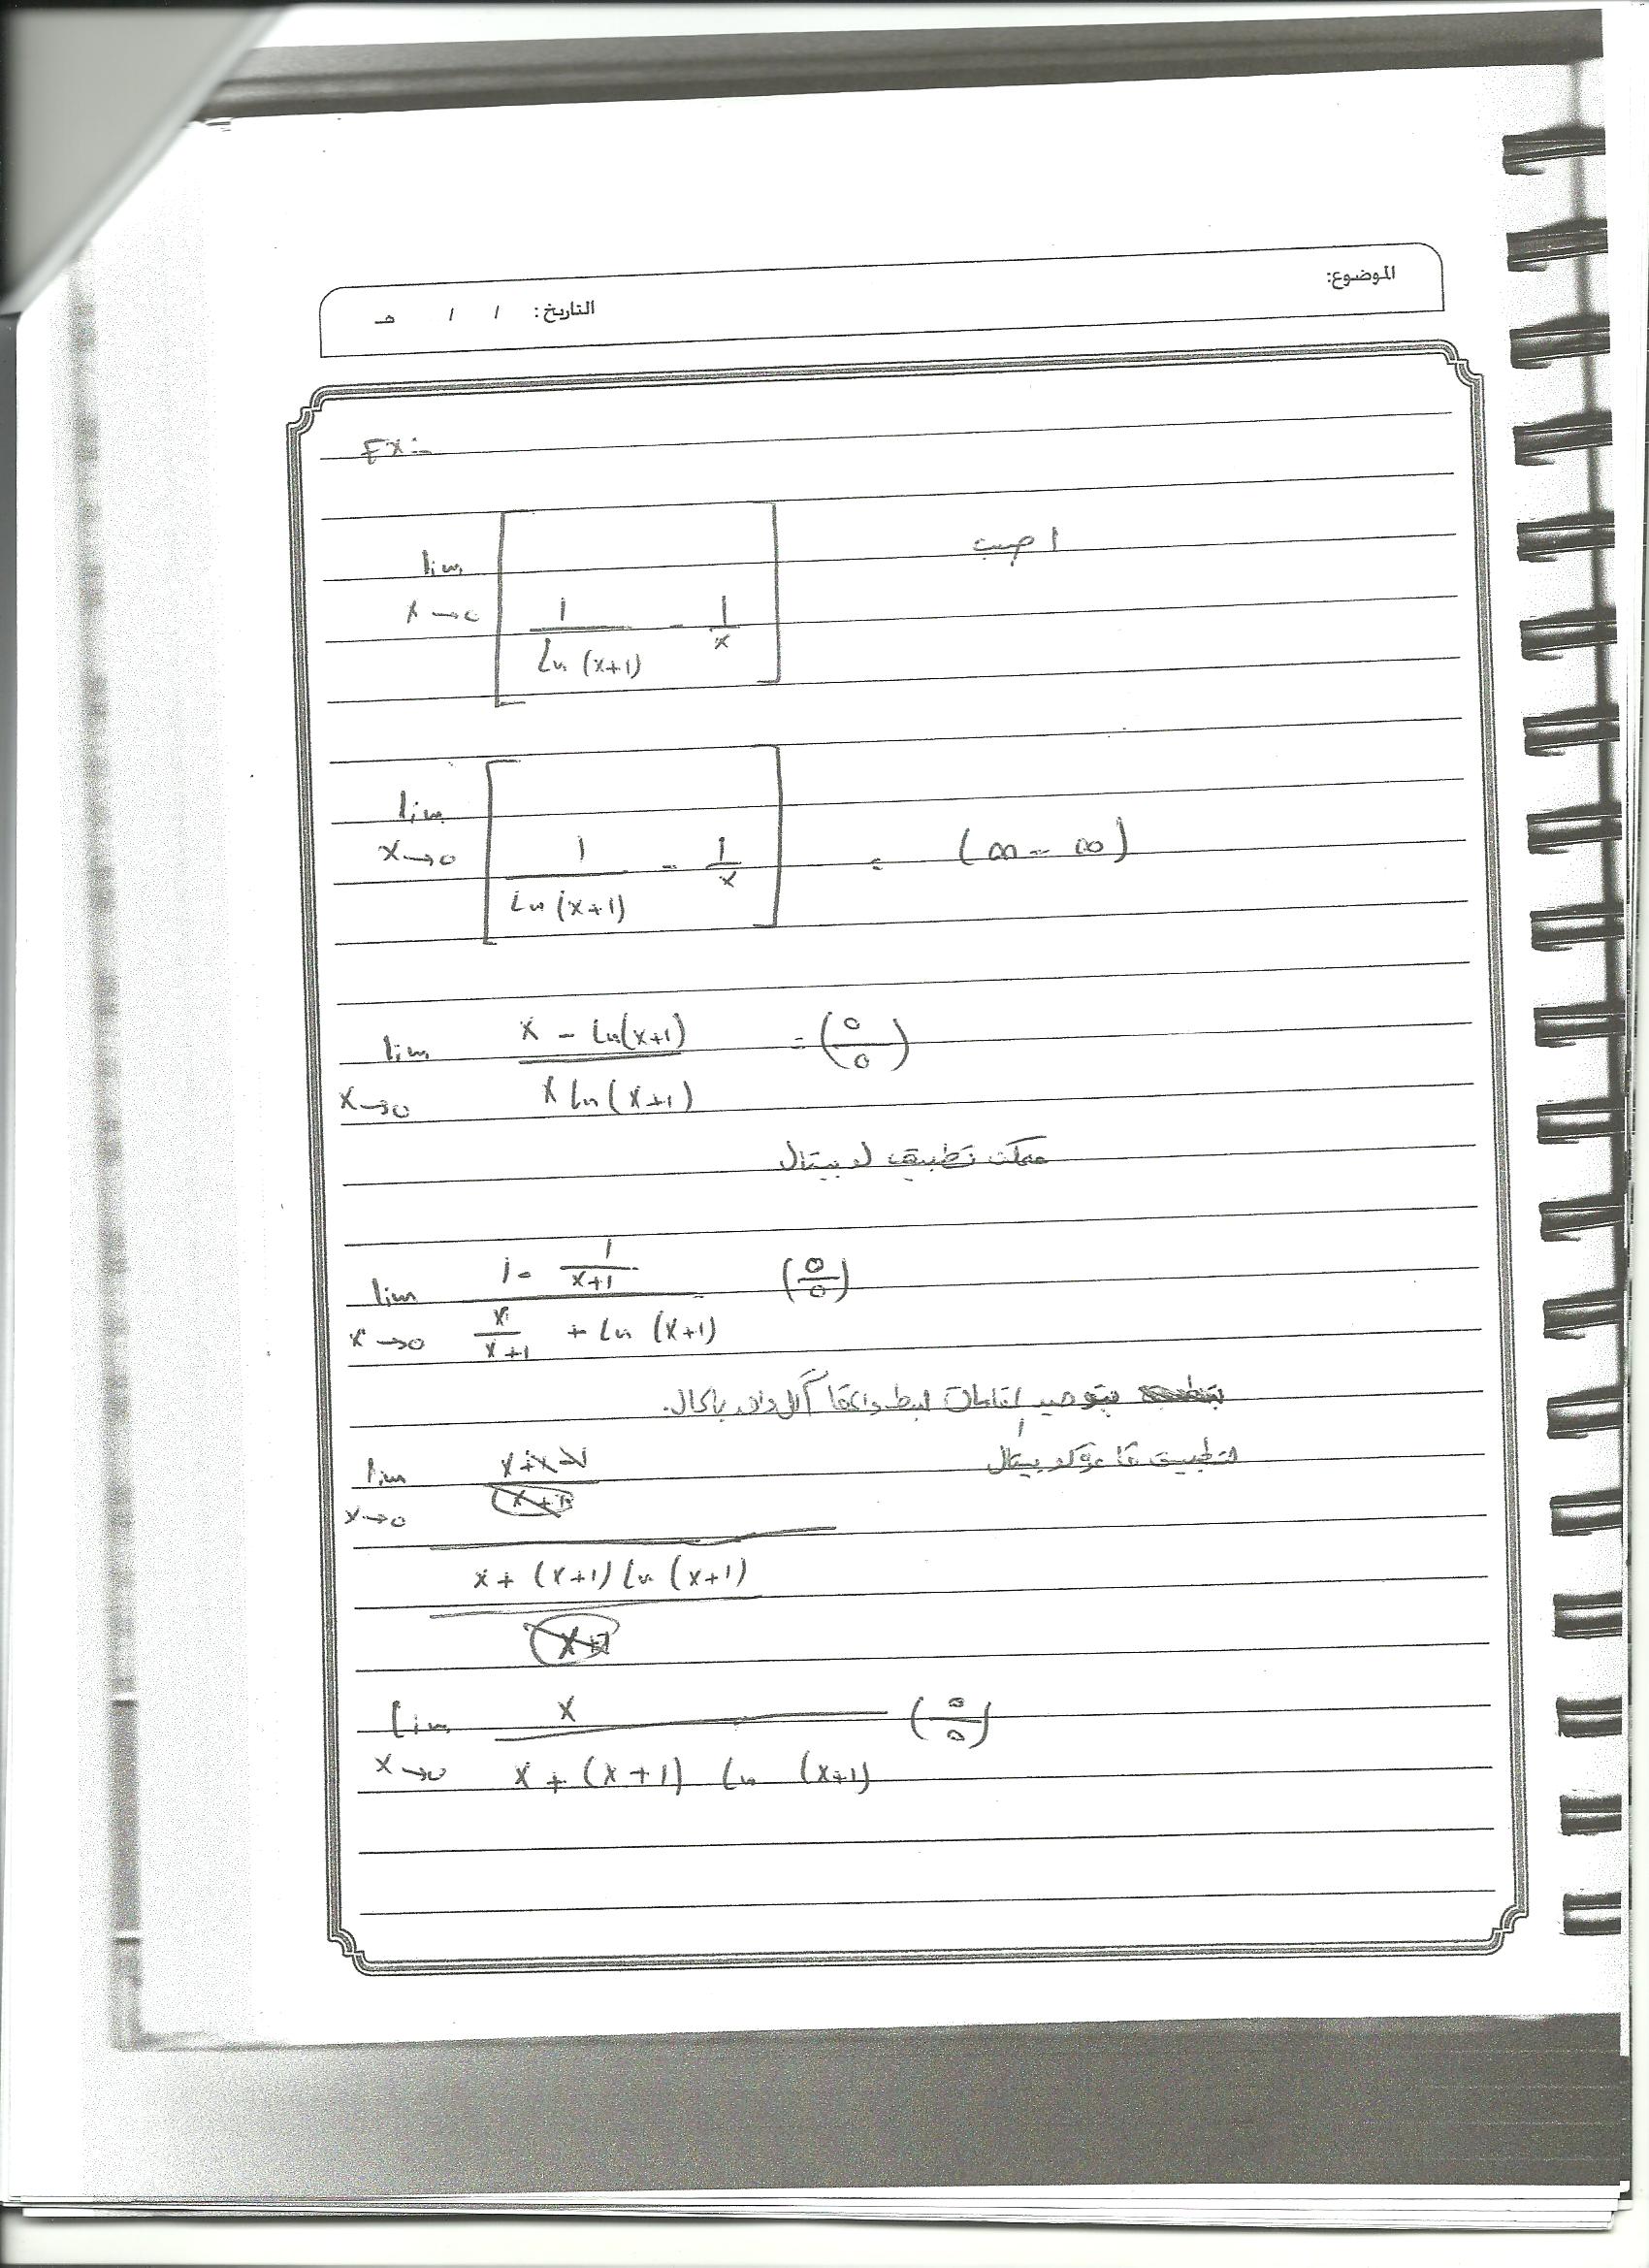 الموضوع:
التاريخ: / / هـ
EX:-
lim x→0 [ 1/Ln(x+1) - 1/x ] احسب
lim x→0 [ 1/Ln(x+1) - 1/x ] = (∞ - ∞)
lim x→0 (x - Ln(x+1))/(x Ln(x+1)) = (0/0)
ممكن تطبيق لوبيتال
lim x→0 (1 - 1/(x+1))/(x/(x+1) + Ln(x+1)) (0/0)
بتوحيد مقامات البسط والمقام
لتطبيق قاعدة لوبيتال
lim x→0 ((x+1-1)/(x+1))/((x+(x+1)Ln(x+1))/(x+1))
Lim x→0 x/(x+(x+1) Ln (x+1)) (0/0)